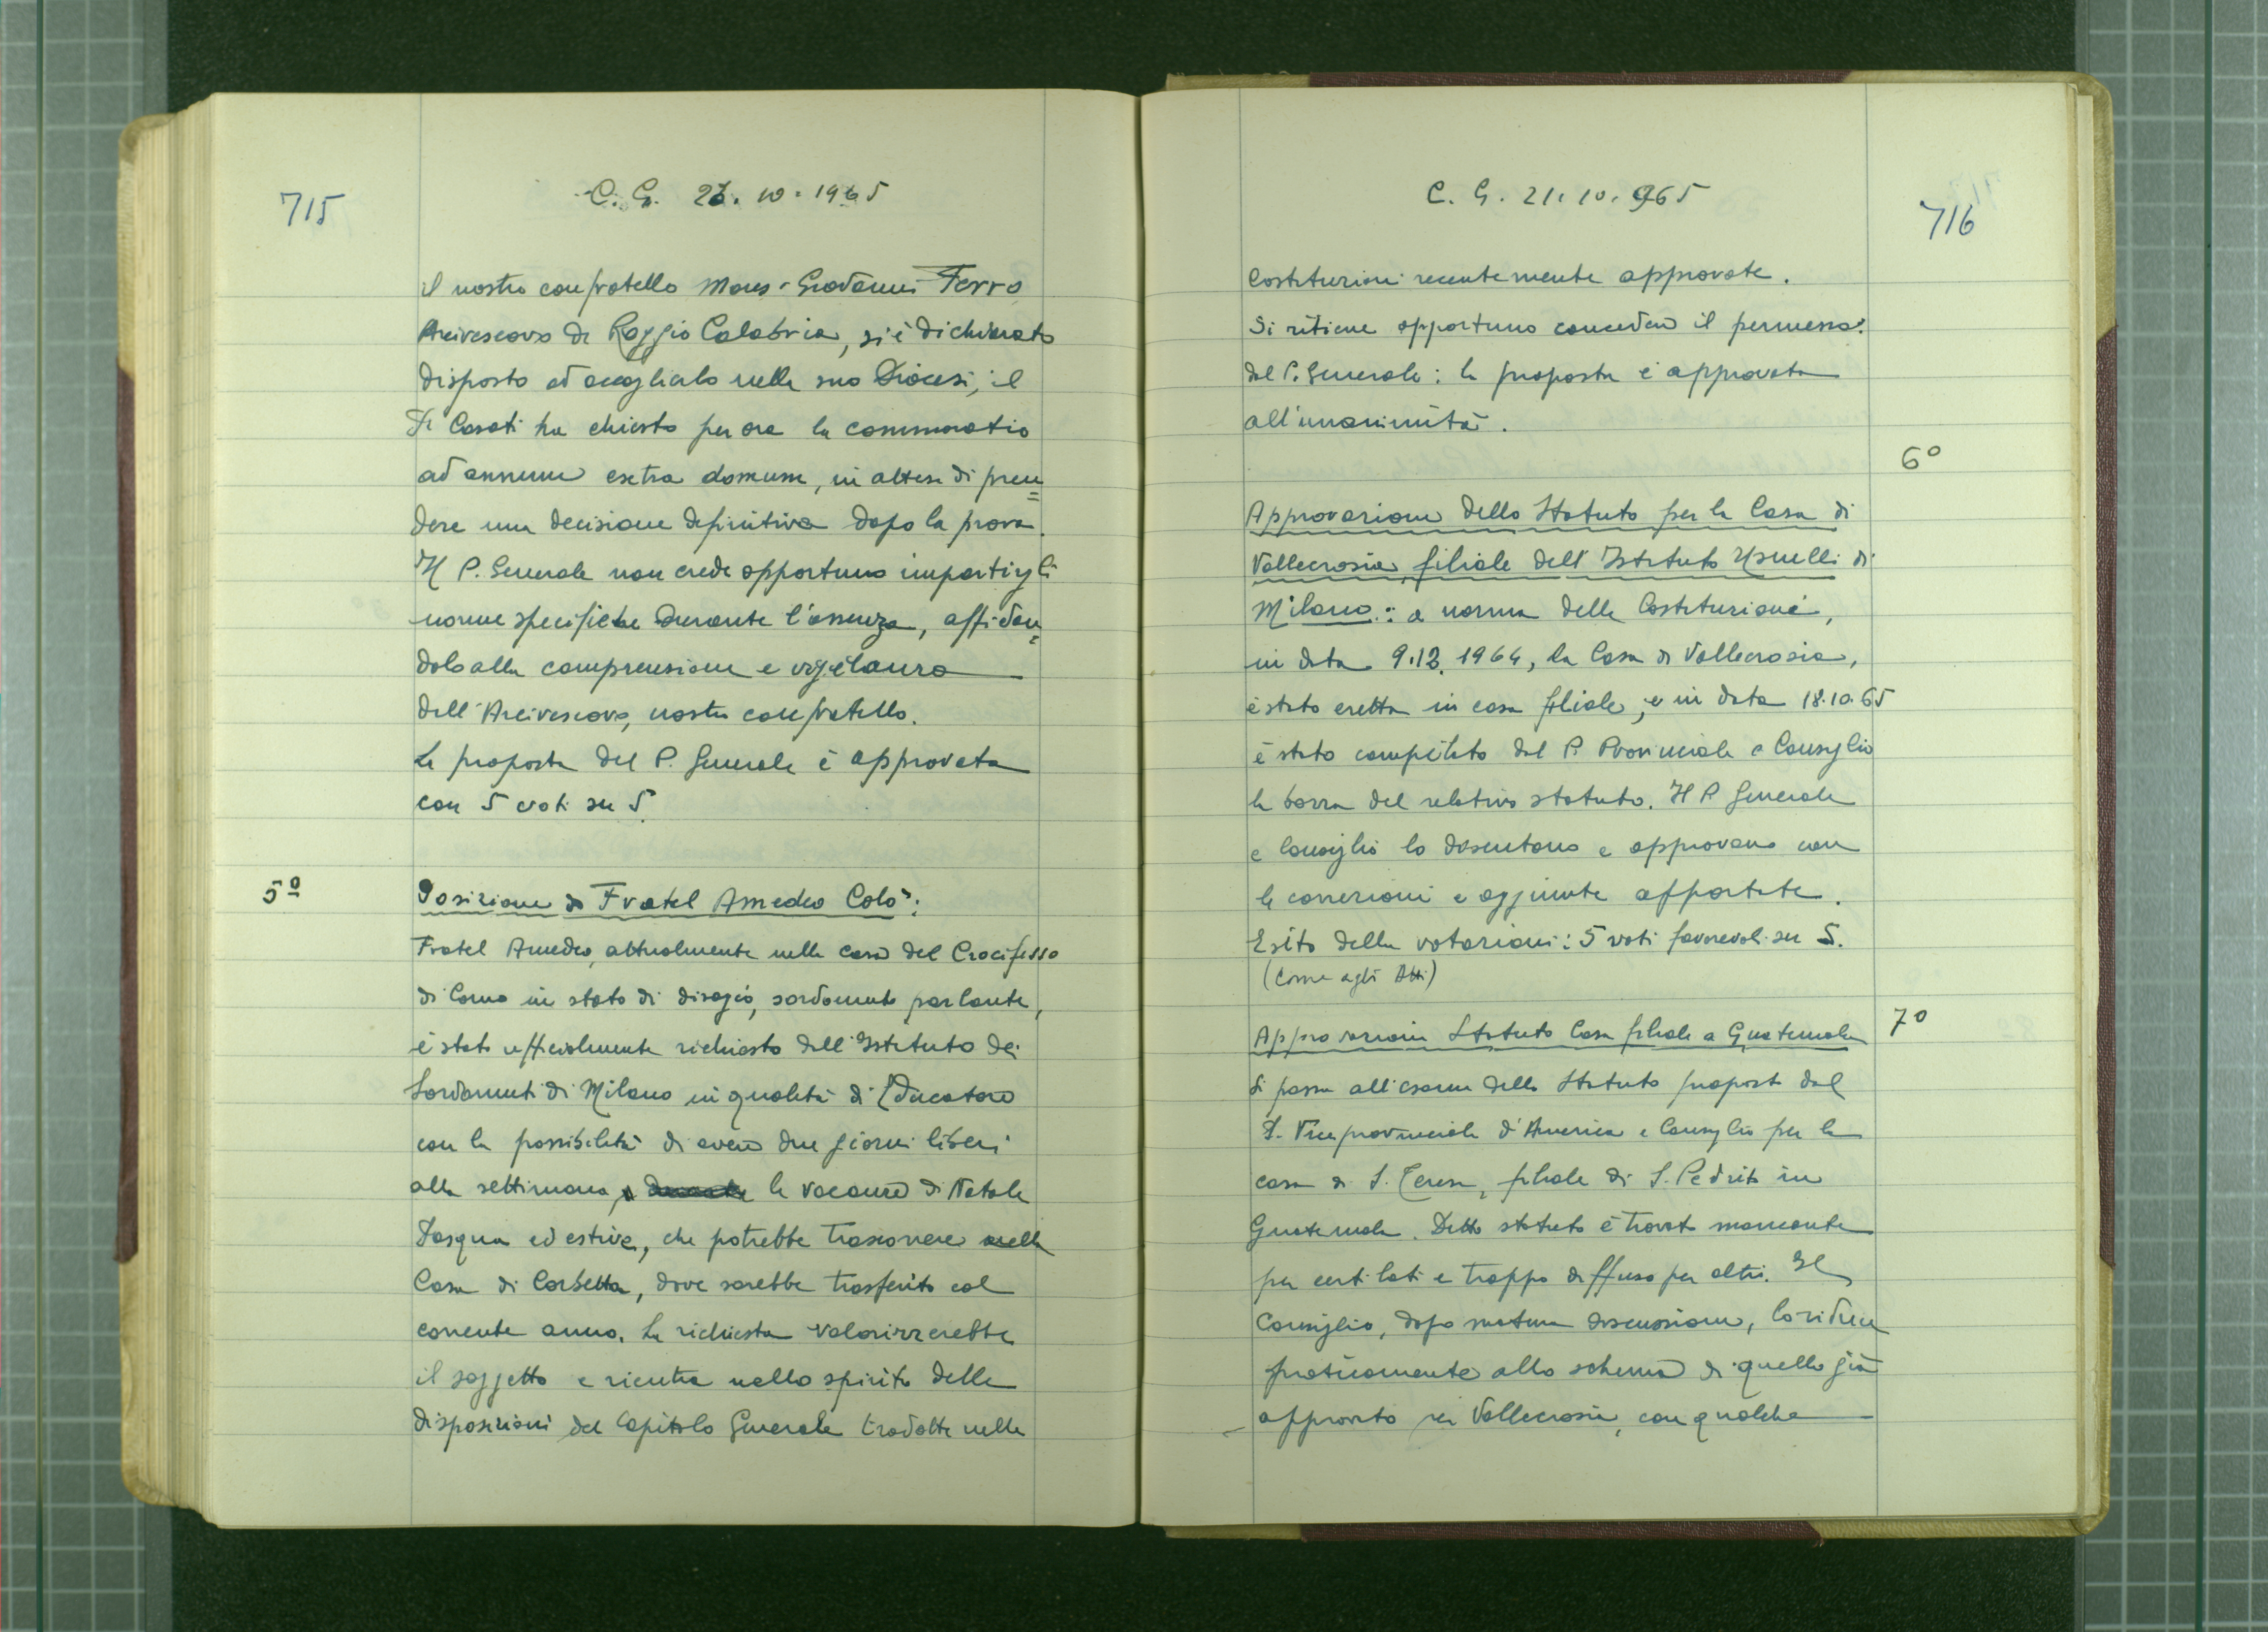 715
C. G. 21. 10. 1965
il nostro confratello Mons. Giovanni Ferro
Arcivescovo di Reggio Calabria, si è dichiarato
disposto ad accoglierlo nella sua Diocesi, il
Fr Casati ha chiesto per ora la commoratio
ad annum extra domum, in attesa di pren=
dere una decisione definitiva dopo la prova.
Il P. Generale non crede opportuno impartirgli
norme specifiche durante l'assenza, affidan=
dolo alla comprensione e vigilanza
dell'Arcivescovo, nostro confratello.
La proposta del P. Generale è approvata
con 5 voti su 5.
5º
Posizione di Fratel Amedeo Colò:
Fratel Amedeo, attualmente nella casa del Crocifisso
di Como in stato di disagio, sordomuto parlante,
è stato ufficialmente richiesto dall'Istituto dei
Sordomuti di Milano in qualità di Educatore
con la possibilità di avere due giorni liberi
alla settimana, le vacanze di Natale
Pasqua ed estive, che potrebbe trascorrere nella
Casa di Corbetta, dove sarebbe trasferito col
corrente anno. La richiesta valorizzerebbe
il soggetto e rientra nello spirito delle
disposizioni del Capitolo Generale tradotte nelle
716
C. G. 21. 10. 965
Costituzioni recentemente approvate.
Si ritiene opportuno concedere il permesso
dal P. Generale: la proposta è approvata
all'unanimità.
6º
Approvazione dello Statuto per la Casa di
Vallecrosia, filiale dell'Istituto Usuelli di
Milano: a norma delle Costituzioni,
in data 9.12.1964, la Casa di Vallecrosia,
è stata eretta in casa filiale, e in data 18.10.65
è stata compilata dal P. Provinciale e Consiglio
la bozza del relativo statuto. Il P. Generale
e Consiglio lo discutono e approvano con
le correzioni e aggiunte apportate.
Esito della votazioni: 5 voti favorevoli su 5.
(Come agli Atti)
7º
Approvazioni Statuto Casa filiale a Guatemala
Si passa all'esame dello Statuto proposto dal
P. Viceprovinciale d'America e Consiglio per la
casa di S. Teresa, filiale di S. Pedrito in
Guatemala. Detto statuto è trovato mancante
per certi lati e troppo diffuso per altri. Il
Consiglio, dopo matura discussione, lo riduce
praticamente allo schema di quello già
approvato per Vallecrosia, con qualche